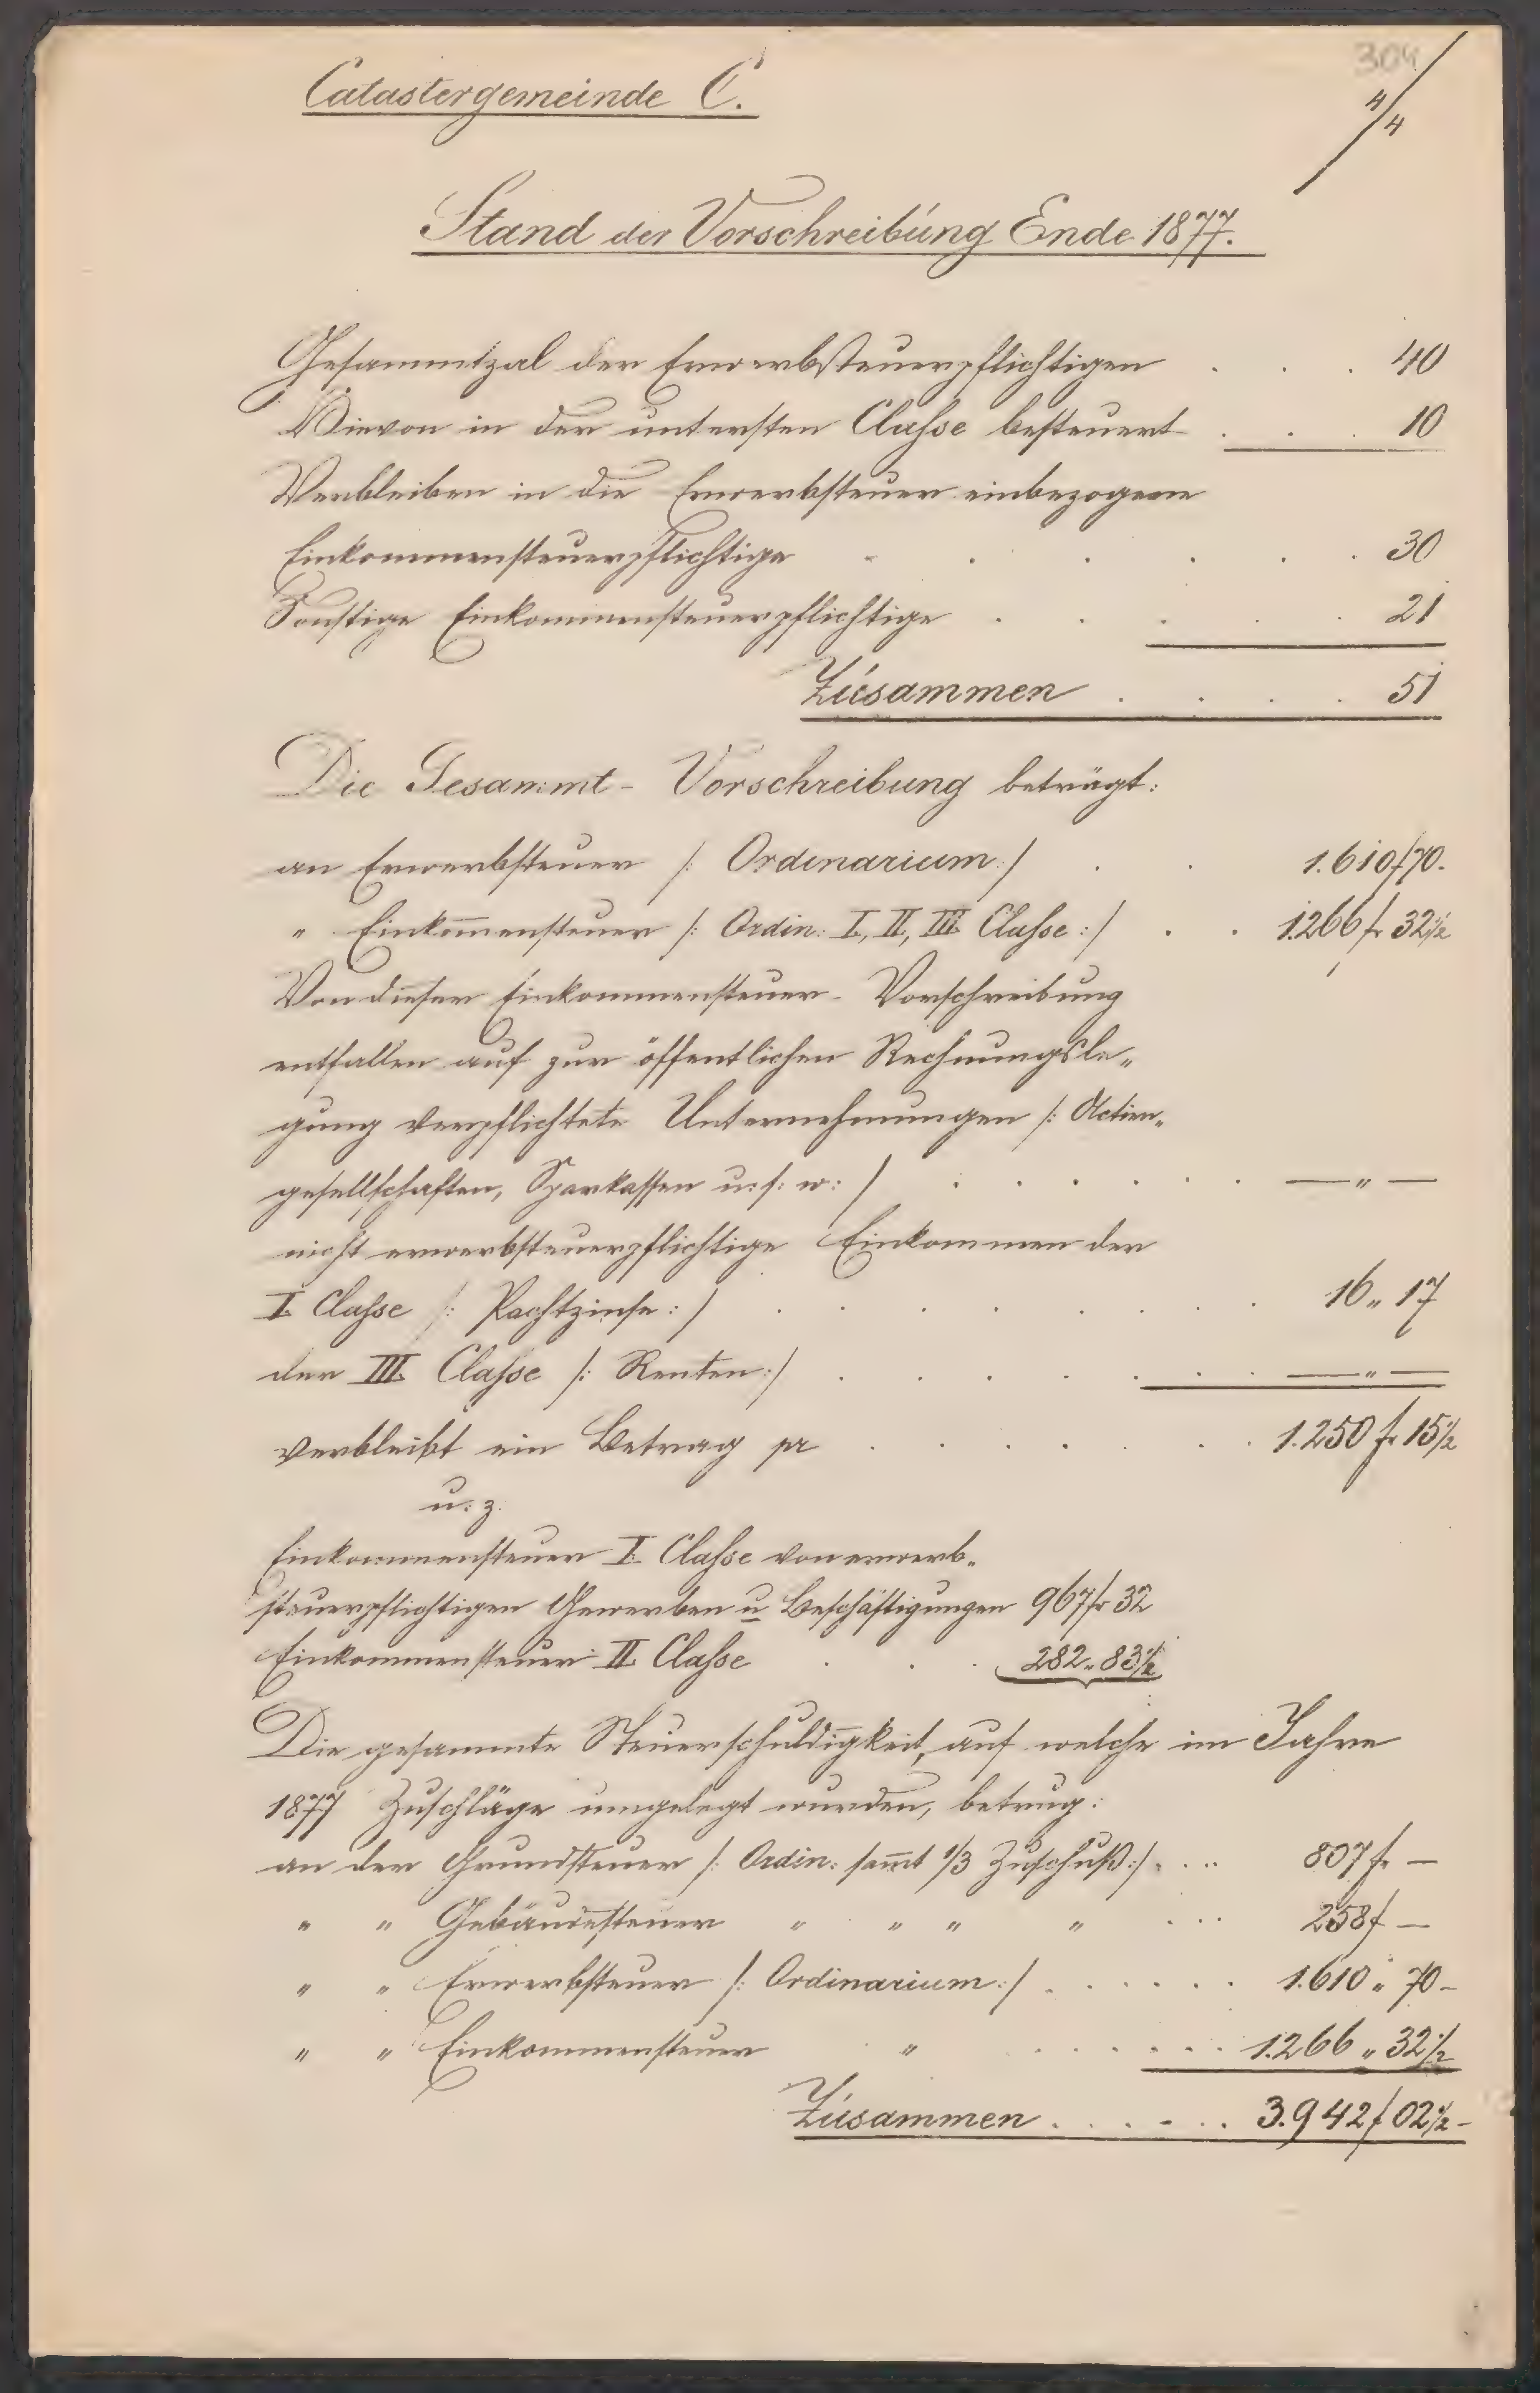 304
4/4
Catastergemeinde C.
Stand der Vorschreibung Ende 1877.
Gesammtzal der Erwerbsteuerpflichtigen . . . 40
Hievon in der untersten Classe besteuert . . . 10
Verbleiben in die Erwerbsteuer einbezogene
Einkommensteuerpflichtige . . . . . . 30
Sonstige Einkommensteuerpflichtige . . . . . 21
Zusammen . . . . 51
Die Gesammt- Vorschreibung beträgt:
an Erwerbsteuer /: Ordinarium :/ . . 1.610 f 70.
" Einkom̄ensteuer /: Ordin: I, II, III Classe :/ . . 1.266 fr 32½
Von dieser Einkommensteuer- Vorschreibung
entfallen auf zur öffentlichen Rechnungsle„
gung verpflichtete Unternehmungen /: Actien„
gesellschaften, Sparkassen u: s: w: / . . . . . . — " —
nicht erwerbsteuerpflichtige Einkommen der
I. Classe /: Pachtzinse :/ . . . . . . . 16 " 17
der III. Classe /: Renten :/ . . . . . . — " —
verbleibt ein Betrag pr . . . . . . 1.250 fr 15½
u. z.
Einkommensteuer I. Classe von erwerb„
steuerpflichtigen Gewerben u Beschäftigungen 967 fr 32
Einkommensteuer II Classe . . . 282 " 83½
Die gesammte Steuerschuldigkeit, auf welche im Jahre
1877 Zuschläge umgelegt wurden, betrug:
an der Grundsteuer /: Ordin: sam̄t 1/3 Zuschuß :/ . . . 807 fr —
" " Gebäudesteuer " " " " . . . 258 f —
" " Erwerbsteuer /: Ordinarium :/ . . . . . . 1.610 " 70 –
" " Einkommensteuer " . . . . . . 1.266 " 32½
Zusammen . . . . . . 3.942 f 02½ –